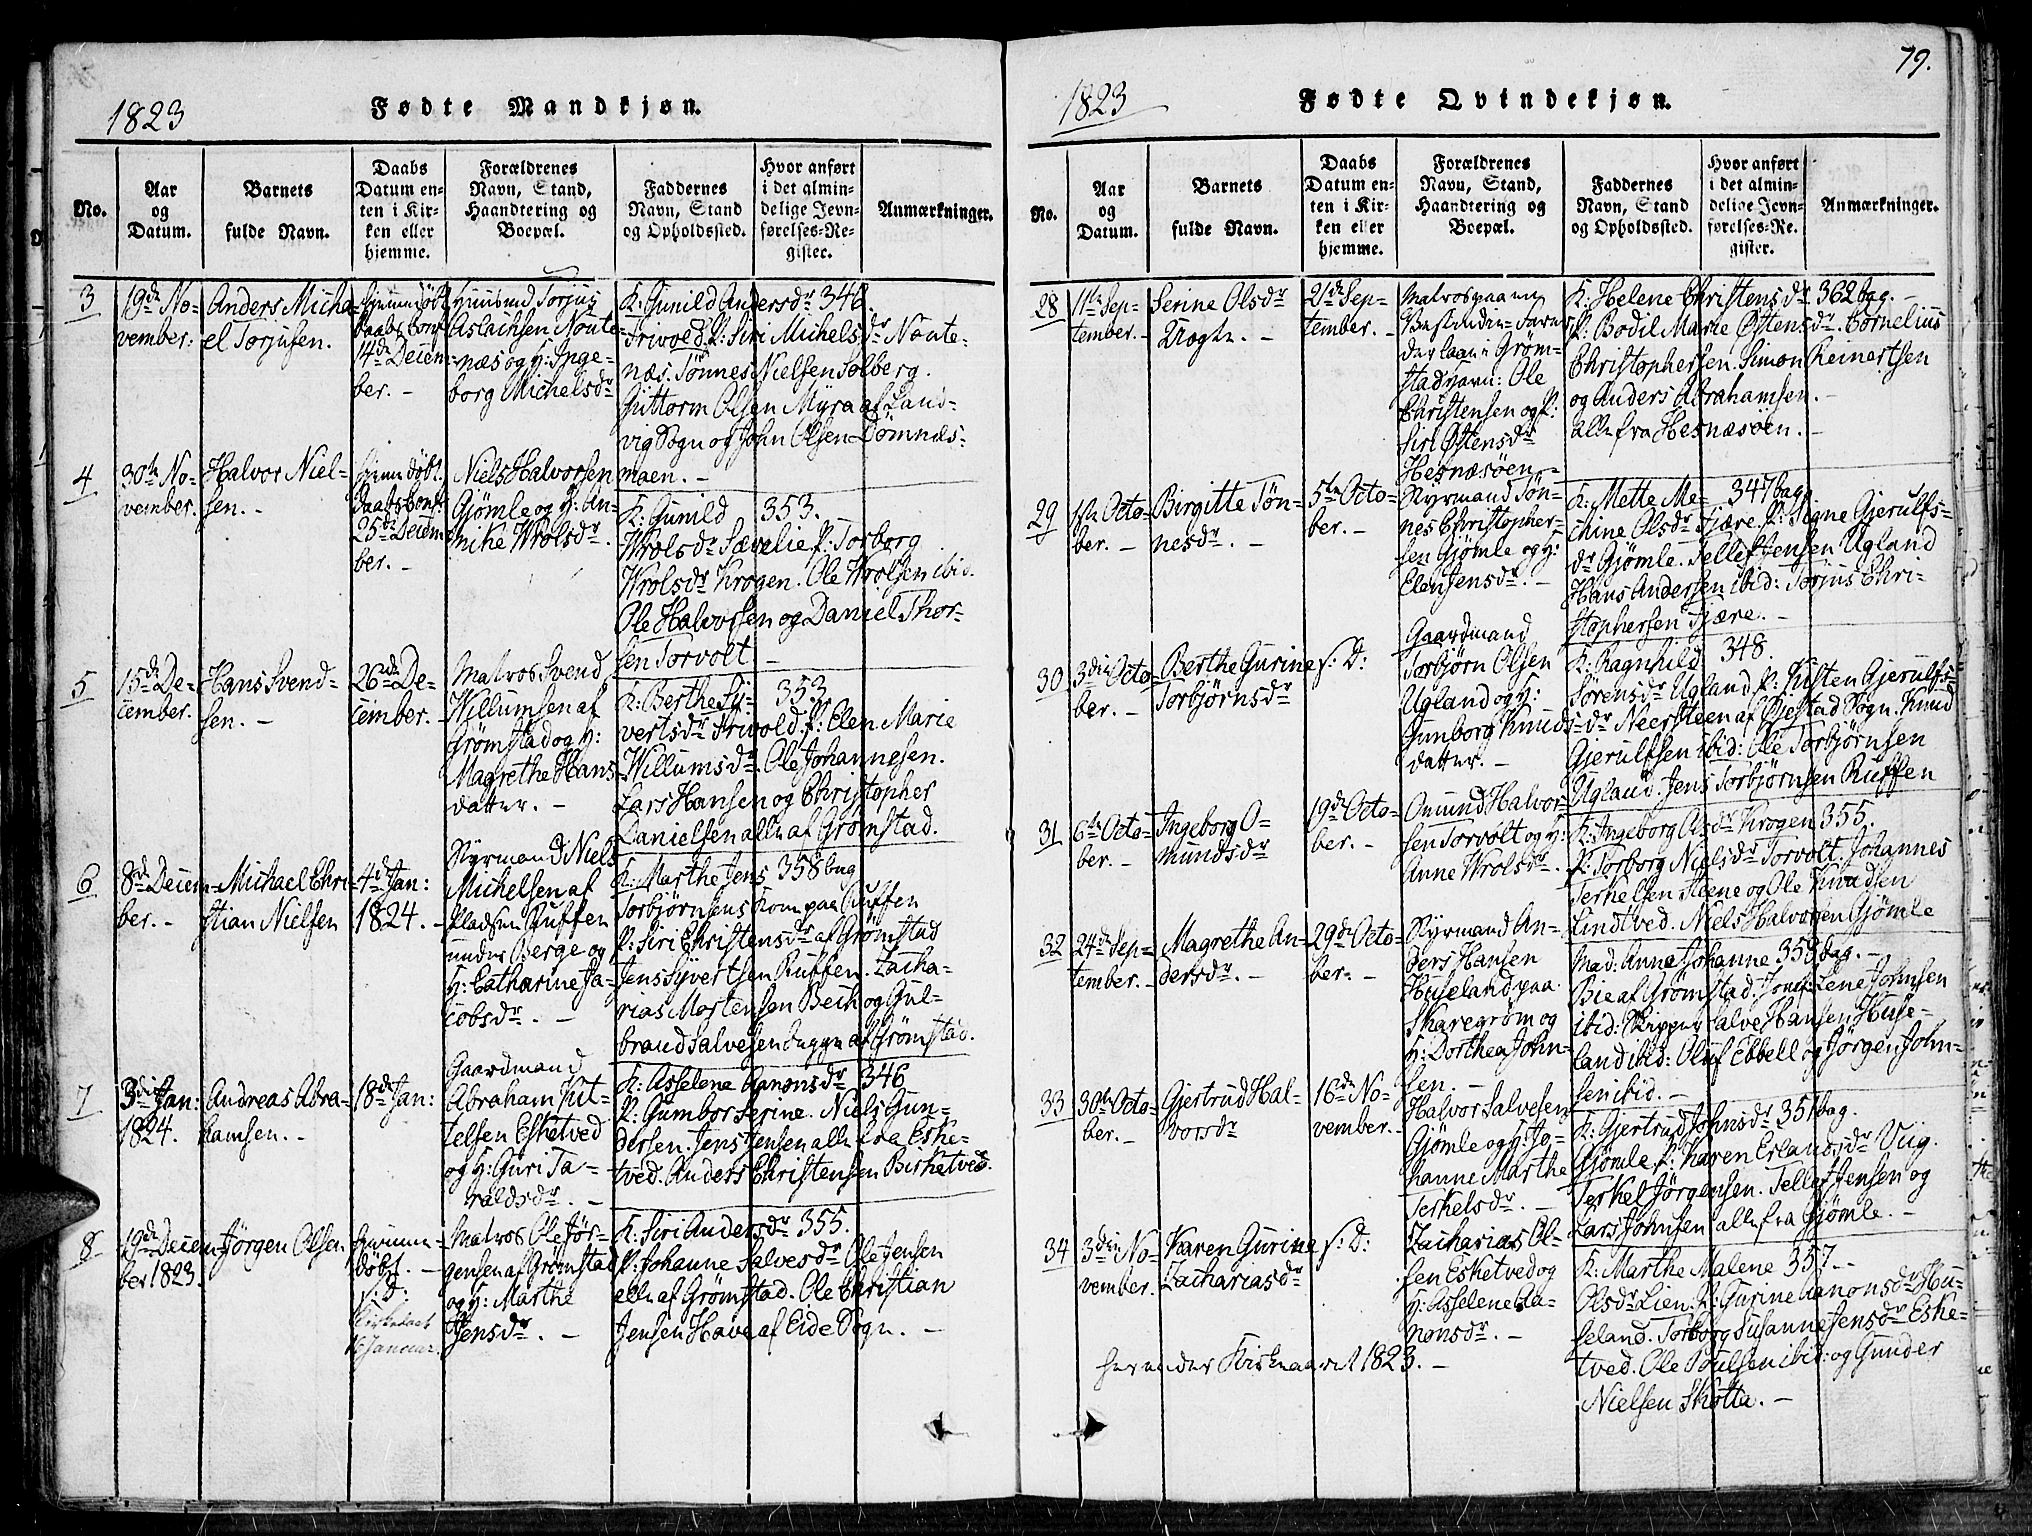 79.
1823
Fødte Mandkjøn.
No.
Aar
og
Datum.
Barnets
fulde Navn.
Daabs
Datum en-
ten i Kir-
ken eller
hjemme.
Forældrenes
Navn, Stand,
Haandtering og
Boepæl.
Faddernes
Navn, Stand
og Opholdssted.
Hvor anført
i det almin-
delige Jevn-
førelses-Re-
gister.
Anmærkninger.
3
19de No-
vember.
Anders Micha-
el Torjusen.
hjemmedöbt
Daabs Conf.
14de Decem-
ber. -
Huusmd Torjus
Aslachsen Noute-
næs og H: Inge-
borg Michelsdr
K: Gunild Andersdr 346.
Trivold. P: Siri Michelsdr Noute-
næs. Tönnes Nielsen Solberg.
Guttorm Olsen Myra af Land-
vig Sogn og John Olsen Dömnæs-
moen. -
4
30te No-
vember.
Halvor Niel-
sen. -
hjemmedöbt.
Daabs Conf.
25de Decem-
ber. -
Niels Halvorsen
Gjömle og H: An-
nike Wrolsdr.
K: Gunild 353.
Wrolsdr Sævelie P: Torborg
Wrolsdr Krogen. Ole Wrolsen ibid.
Ole Halvorsen og Daniel Thor-
sen Torvolt -
5
15de De-
cember.
Hans Svend-
sen. -
26de De-
cember. -
Matros Svend
Willumsen af
Grömstad og H:
Magrethe Hans-
datter. -
K: Berthe Sy- 353
vertsdr Trivold. P: Elen Marie
Willumsdr. Ole Johannesen.
Lars Hansen og Christopher
Danielsen alle af Grömstad.
6
8de Decem-
ber. -
Michael Chri-
stian Nielsen
4de Jan:
1824. -
Nyrmand Niels
Michelsen af
Pladsen Ruffen
under Berge og
H: Catharine Ja-
cobsdr. -
K: Marthe Jens 358 bag
Torbjörnsens Kone paa Ruffen
P: Siri Christensdr af Grömstad
Jens Syvertsen Ruffen. Zacha-
rias Mortensen Bech og Gul-
brand Salvesen Dugge af Grömstad.
7
3die Jan:
1824.
Andreas Abra-
hamsen. -
18de Jan:
Gaardmand
Abraham Kit-
telsen Esketved
og H: Guri Ta-
raldsdr. -
K: Asselene Aanonsdr 346
P: Gumbor Serine. Niels Gun-
dersen. Jens Jensen alle fra Eske-
tved. Anders Christensen Birketved.
8
19de Decem-
ber 1823.
Jörgen Olsen
hjemme-
döbt. -
s: D:
Kirkedaab
16 Januar.
Matros Ole Jör-
gensen af Grömstad
og H: Marthe
Jensdr. -
K: Siri Andersdr 355.
P: Johanne Salvesdr Ole Jensen
alle af Grömstad. Ole Christian
Jensen Have af Eide Sogn. -
1823
Fødte Qvindekjøn.
No.
Aar
og
Datum.
Barnets
fulde Navn.
Daabs
Datum en-
ten i Kir-
ken eller
hjemme.
Forældrenes
Navn, Stand,
Haandtering og
Boepæl.
Faddernes
Navn, Stand
og Opholdssted.
Hvor anført
i det almin-
delige Jevn-
førelses-Re-
gister.
Anmærkninger.
28
11te Sep-
tember. -
Serine Olsdr
Uægte. -
21de Sep-
tember. -
Matros paa en
stad havn: Ole
Christensen og P:
Siri Östensdr
Hesnæsöen. -
K: Helene Christensdr 362 bag. -
P: Bodil Marie Östensdr. Cornelius
Christophersen. Simon Reinertsen
og Anders Abrahamsen. -
alle fra Hesnæsöen. -
29
1ste Octo-
ber. -
Birgitte Tön-
nesdr. -
5te Octo-
ber. -
Nyrmand Tön-
nes Christopher-
sen Gjömle og H:
Elen Jensdr. -
K: Mette Me- 347 bag.
chine Olsdr Tjære. P: Signe Gjerulfs-
dr Gjömle. Tellef Jensen Ugland
Hans Andersen ibid: Torjus Chri-
stophersen Tjære. -
30
3die Octo-
ber. -
Berthe Gurine
Torbjörnsdr
s: D:
Gaardmand
Torbjörn Olsen
Ugland og H:
Gunborg Knuds-
datter. -
K: Ragnhild 348.
Sörensdr Ugland P: Kisten Gjerulfs-
dr Neersteen af Öjestad Sogn. Knud
Gjerulfsen ibid: Ole Torbjörnsen
Ugland. Jens Torbjörnsen Ruffen
31
6te Octo-
ber. -
Ingeborg O-
mundsdr
19de Octo-
ber. -
Omund Halvor-
sen Torvolt og H:
Anne Wrolsdr.
K: Ingeborg Olsdr Krogen 355.
P: Torborg Nielsdr Torvolt. Johannes
Terkelsen Steene og Ole Knudsen
Lindtved. Niels Halvorsen Gjömle
32
24de Sep-
tember. -
Magrethe An-
dersdr. -
29de Octo-
ber. -
Nyrmand An-
ders Hansen
Huseland paa
Skaregröm og
H: Dorthea John-
sen. -
Mad: Anne Johanne 358 bag. -
Bie af Grömstad. Jomf: Lene Johnsen
ibid: Skipper Salve Hansen Huse-
land ibid: Oluf Ebbell og Jörgen John-
sen ibid. -
33
30te Octo-
ber. -
Gjertrud Hal-
vorsdr
16de No-
vember. -
Halvor Salvesen
Gjömle og H: Jo-
hanne Marthe
Terkelsdr. -
K: Gjertrud Johnsdr 351 bag.
Gjömle P: Karen Erlandsdr Viig.
Terkel Jörgensen. Tellef Jensen og
Lars Johnsen alle fra Gjömle. -
34
3die No-
vember.
Karen Gurine
Zachariasdr
s: D:
Zacharias Ol-
sen Esketved og
H: Asselene Aa-
nonsdr. -
K: Marthe Malene 357 -
Olsdr Lien. P: Gurine Aanonsdr Hu-
seland. Torborg Susanne Jensdr Eske-
tved. Ole Poulsen ibid: og Gunder
Nielsen Skotta. -
her ender Kirkeaaret 1823. -